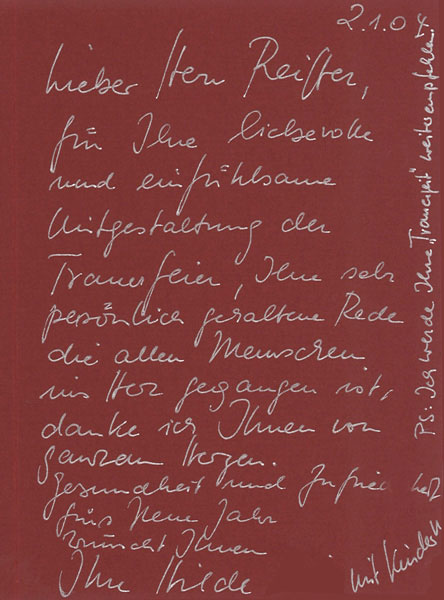 2.1.04
Lieber Herr Reiffer,
für Ihre liebevolle
und einfühlsame
Mitgestaltung der
Trauerfeier, Ihre sehr
persönlich gehaltene Rede
die allen Menschen
ins Herz gegangen ist,
danke ich Ihnen von
ganzem Herzen.
Gesundheit und Zufriedenheit
fürs Neue Jahr
wünscht Ihnen
Ihre Hilde
mit Kindern
PS: Ich werde Ihre "Trauerzeit" weiterempfehlen.